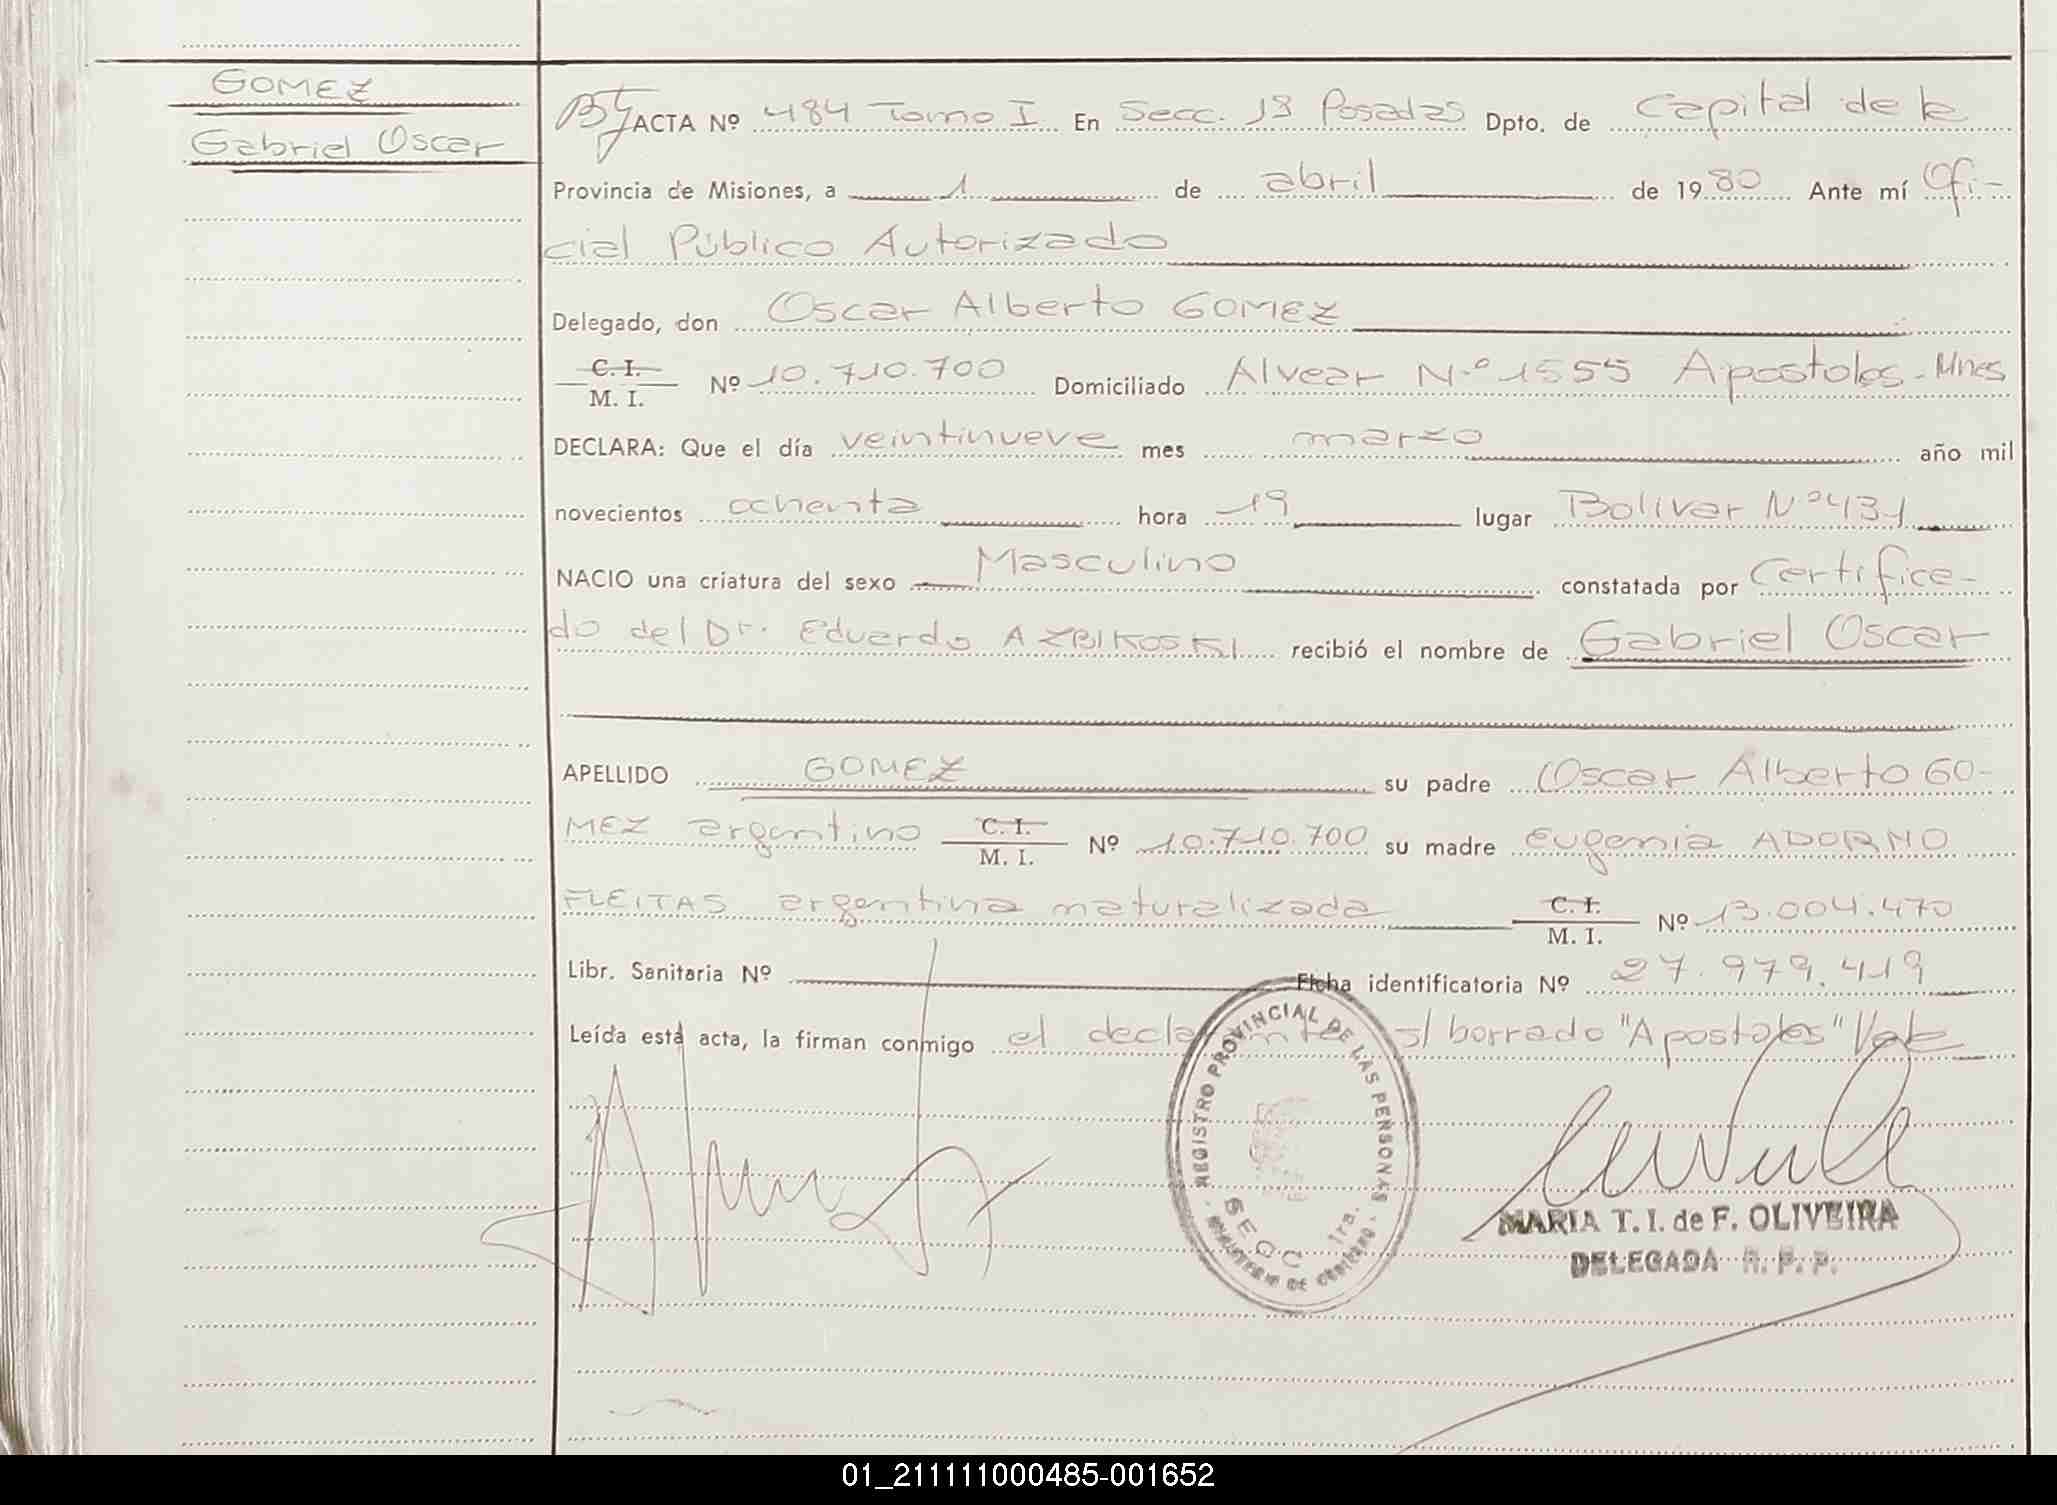 GOMEZ
Gabriel Oscar
ACTA Nº 484 Tomo I En Secc. 1ª Posadas Dpto. de Capital de la
Provincia de Misiones, a 1 de abril de 1980 Ante mí Ofi-
cial Público Autorizado
Delegado, don Oscar Alberto GOMEZ
C. I.
M. I. Nº 10.710.700 Domiciliado Alvear Nº 1555 Apostoles - Mnes
DECLARA: Que el día veintinueve mes marzo año mil
novecientos ochenta hora 19 lugar Bolivar Nº 431
NACIO una criatura del sexo Masculino constatada por Certifica-
do del Dr. Eduardo AZBIKOSKI recibió el nombre de Gabriel Oscar
APELLIDO GOMEZ su padre Oscar Alberto GO-
MEZ argentino C. I. M. I. Nº 10.710.700 su madre Eugenia ADORNO
FLEITAS argentina naturalizada C. I. M. I. Nº 13.004.470
Libr. Sanitaria Nº Ficha identificatoria Nº 27.979.419
Leída está acta, la firman conmigo el declarante s/ borrado "Apostoles" Vale
REGISTRO PROVINCIAL DE LAS PERSONAS
SECC. 1ra.
MINISTERIO DE GOBIERNO
MARIA T. I. de F. OLIVEIRA
DELEGADA R. P. P.
01_211111000485-001652